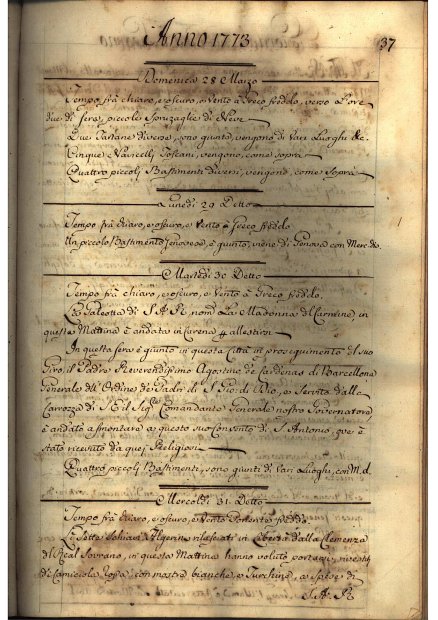 Anno 1773
37
Domenica 28 Marzo
Tempo frà chiaro, e oscuro, e Vento à Greco freddo, verso l'ore
dieci di sera, piccole di Neve
Due Tartane diverse, sono giunte, vengono di Vari Luoghi &c.
Cinque Navicelli Toscani, vengono, come sopra
Quattro piccoli Bastimenti diversi, vengono, come sopra
Lunedi 29 Detto
Tempo frà chiaro, e oscuro, e Vento à Greco freddo
Un piccolo Bastimento Genovese, è giunto, viene di Genova con Merc.
Martedi 30 Detto
Tempo frà chiaro, e oscuro, e Vento à Greco freddo.
La Galeotta di S.A.R. nom. La Madonna del Carmine, in
questa Mattina è andata in Carena
In questa sera è giunto in questa Città in proseguimento del suo
Giro, il Padre Reverendissimo Agostino de Cardenas di Barcellona
Generale dell'Ordine de Padri di S. Gio: di Dio, e servito dalla
Carrozza di S.E. il Sig.re Comandante Generale nostro Governatore,
è andato a smontare a questo suo Convento di S. Antonio, ove è
stato ricevuto da quei Religiosi
Quattro piccoli Bastimenti, sono giunti di Vari Luoghi, con M. d.
Mercoldi 31 Detto
Tempo frà chiaro, e oscuro, e Vento Ponente freddo
Li Sette Schiavi Algerini rilasciati in Libertà dalla Clemenza
del Real Sovrano, in questa Mattina hanno voluto portarsi, vestiti
di Camiciola Ropa, con mostre bianche, e Turchine, a spese di
S.A.R.